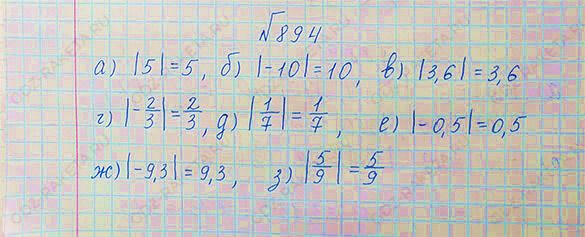 №894
а) |5|=5, б) |-10|=10, в) |3,6|=3,6
г) |-2/3|=2/3, д) |1/7|=1/7, е) |-0,5|=0,5
ж) |-9,3|=9,3, з) |5/9|=5/9